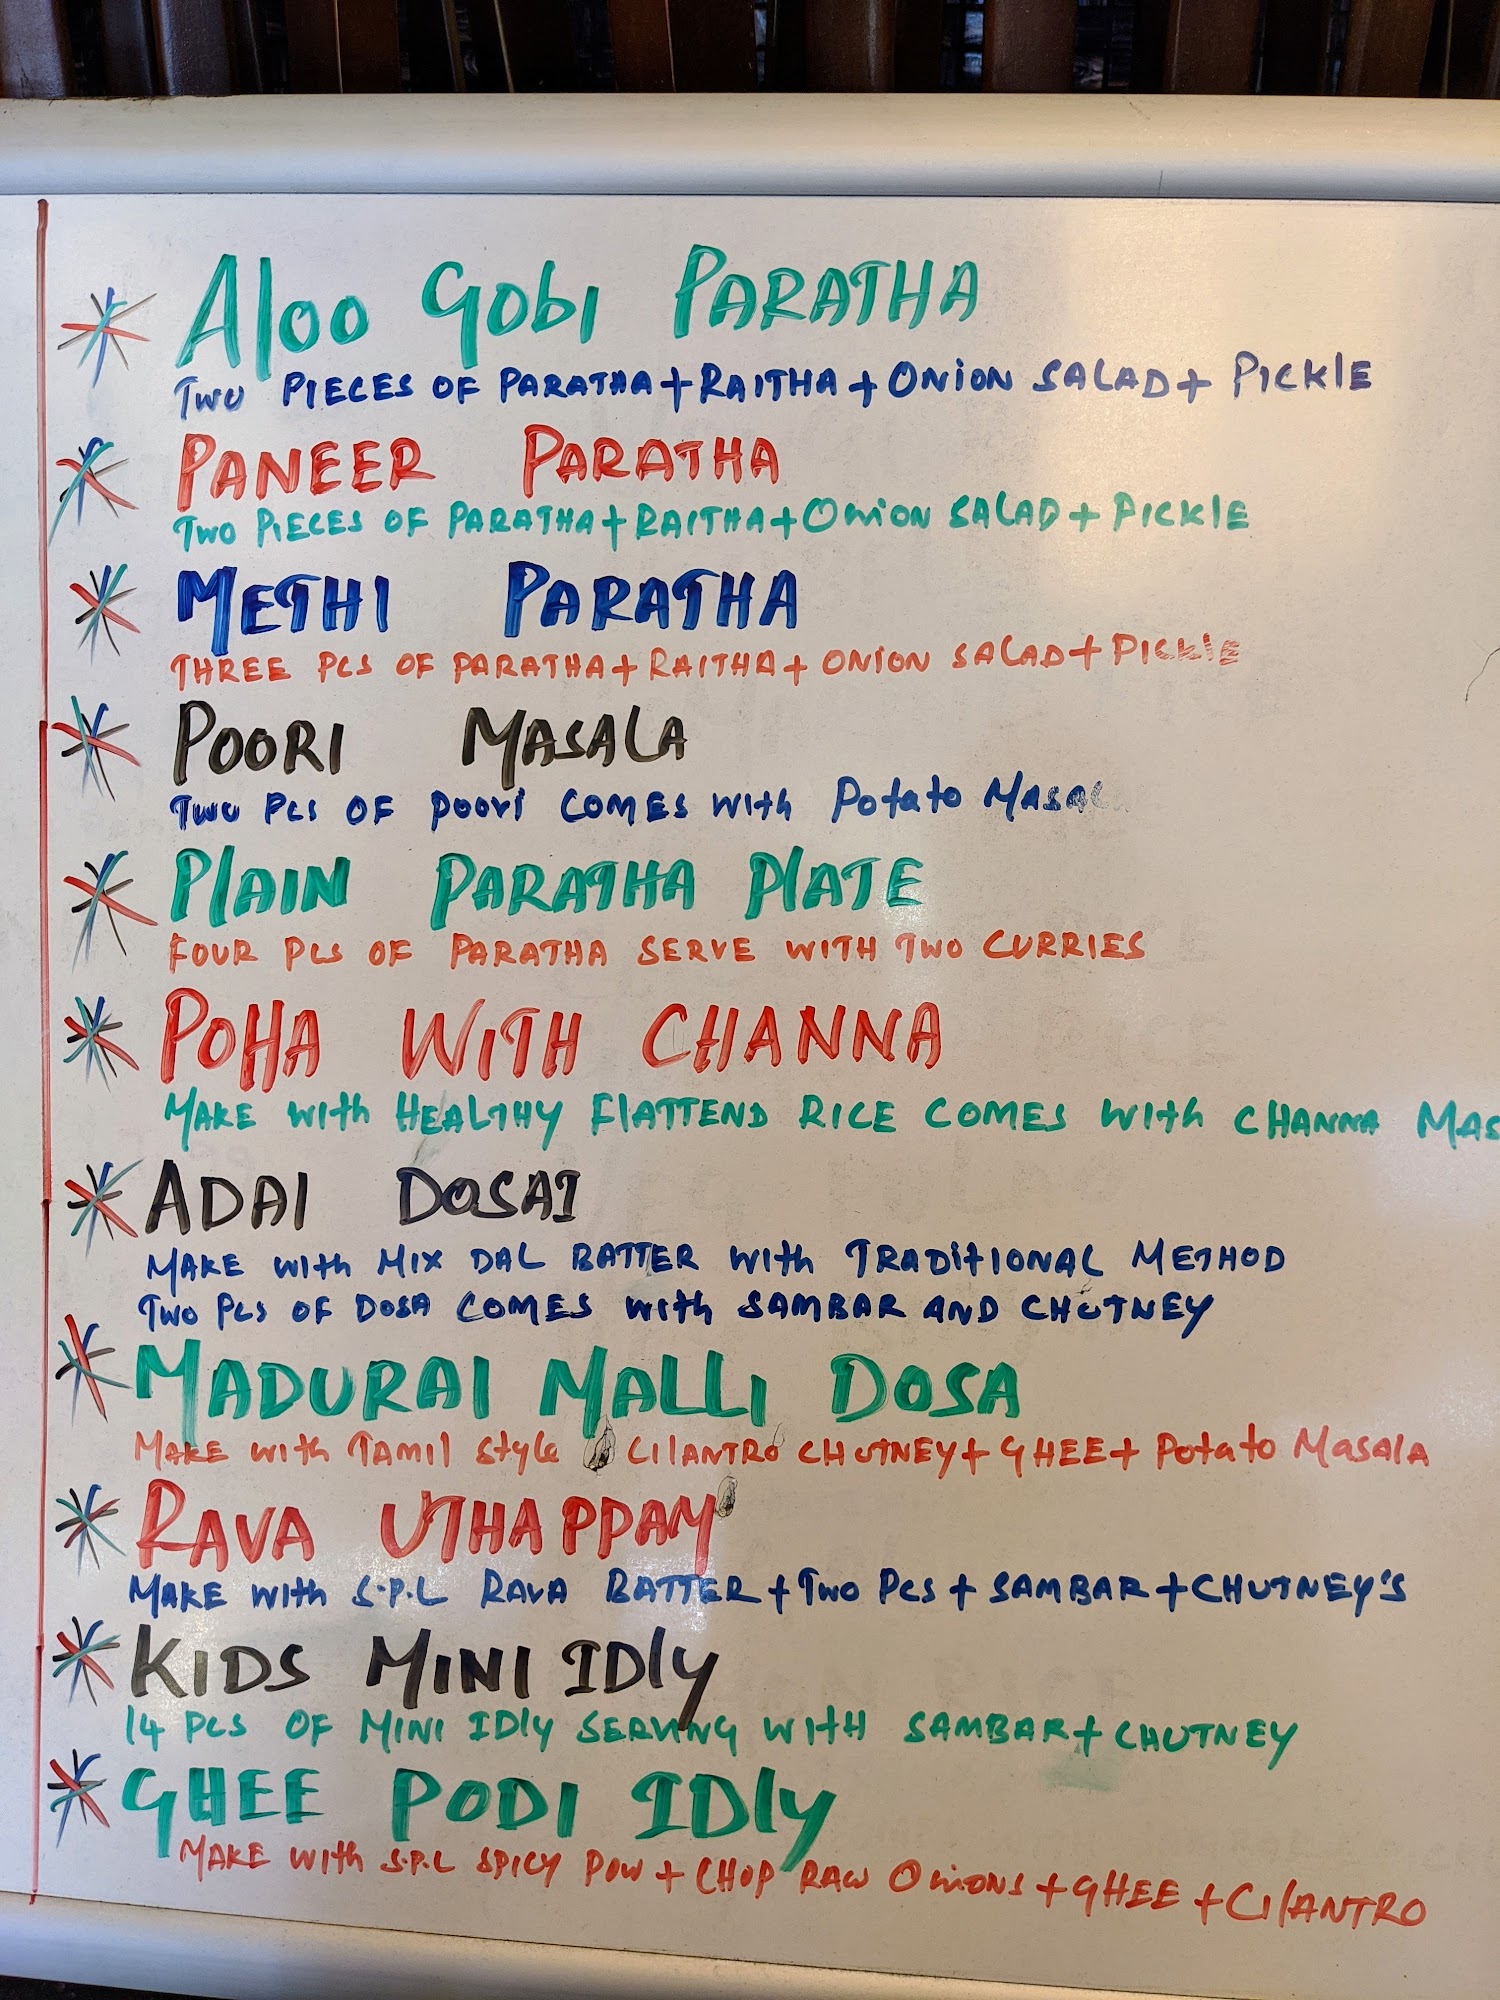 Aloo Gobi PARATHA
Two PIECES OF PARATHA + RAITHA + ONION SALAD + PICKLE
PANEER PARATHA
Two PIECES OF PARATHA + RAITHA + ONION SALAD + PICKLE
METHI PARATHA
THREE PCS OF PARATHA + RAITHA + ONION SALAD + PICKLE
POORI MASALA
TWO PCS OF POORI COMES WITH Potato MASAL
PLAIN PARATHA PLATE
FOUR PCS OF PARATHA SERVE WITH TWO CURRIES
POHA WITH CHANNA
MAKE WITH HEALTHY FLATTEND RICE COMES WITH CHANNA MAS
ADAI DOSAI
MAKE WITH MIX DAL BATTER WITH TRADITIONAL METHOD
TWO PCS OF DOSA COMES WITH SAMBAR AND CHUTNEY
MADURAI MALLI DOSA
MAKE WITH TAMIL Style CILANTRO CHUTNEY + GHEE + Potato MASALA
RAVA UTHAPPAM
MAKE WITH S.P.L RAVA BATTER + TWO PCS + SAMBAR + CHUTNEY'S
KIDS MINI IDLY
14 PCS OF MINI IDLY SERVING WITH SAMBAR + CHUTNEY
GHEE PODI IDLY
MAKE WITH S.P.L SPICY POW + CHOP RAW ONIONS + GHEE + CILANTRO